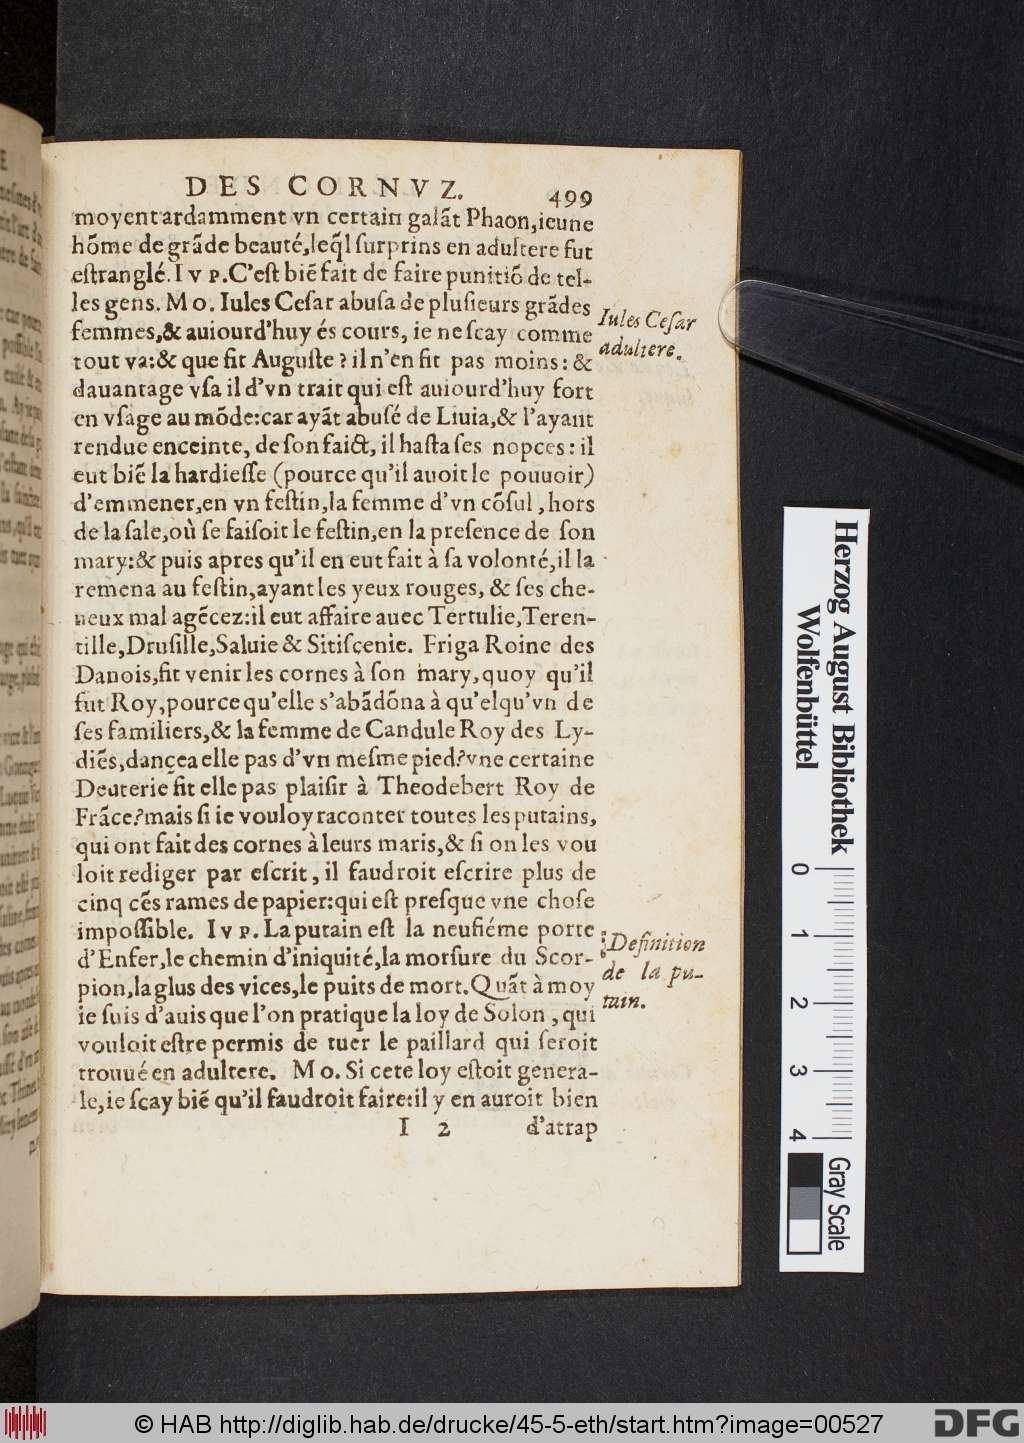 DES CORNVZ. 499
moyent ardamment vn certain galãt Phaon, ieune
hõme de grãde beauté, leq̃l ſurprins en adultere fut
eſtranglé. IVP. C'eſt biẽ fait de faire punitiõ de tel-
les gens. MO. Iules Ceſar abuſa de pluſieurs grãdes
femmes, & auiourd'huy és cours, ie ne ſcay comme
tout va: & que fit Auguſte? il n'en fit pas moins: &
dauantage vſa il d'vn trait qui eſt auiourd'huy fort
en vſage au mõde: car ayãt abuſé de Liuia, & l'ayant
rendue enceinte, de ſon faict, il haſta ſes nopces: il
eut biẽ la hardieſſe (pource qu'il auoit le pouuoir)
d'emmener, en vn feſtin, la femme d'vn cõſul, hors
de la ſale, où ſe faiſoit le feſtin, en la preſence de ſon
mary: & puis apres qu'il en eut fait à ſa volonté, il la
remena au feſtin, ayant les yeux rouges, & ſes che-
ueux mal agẽcez: il eut affaire auec Tertulie, Teren-
tille, Druſille, Saluie & Sitiſcenie. Friga Roine des
Danois, fit venir les cornes à ſon mary, quoy qu'il
fut Roy, pource qu'elle s'abãdõna à qu'elqu'vn de
ſes familiers, & la femme de Candule Roy des Ly-
diẽs, dançea elle pas d'vn meſme pied? vne certaine
Deuterie fit elle pas plaiſir à Theodebert Roy de
Frãce? mais ſi ie vouloy raconter toutes les putains,
qui ont fait des cornes à leurs maris, & ſi on les vou
loit rediger par eſcrit, il faudroit eſcrire plus de
cinq cẽs rames de papier: qui eſt preſque vne choſe
impoſſible. IVP. La putain eſt la neufiéme porte
d'Enfer, le chemin d'iniquité, la morſure du Scor-
pion, la glus des vices, le puits de mort. Quãt à moy
ie ſuis d'auis que l'on pratique la loy de Solon, qui
vouloit eſtre permis de tuer le paillard qui ſeroit
trouué en adultere. MO. Si cete loy eſtoit genera-
le, ie ſcay biẽ qu'il faudroit faire: il y en auroit bien
I 2 d'atrap
Iules Ceſar
adultere.
Definition
de la pu-
tain.
Herzog August Bibliothek
Wolfenbüttel
0 1 2 3 4
Gray Scale
© HAB http://diglib.hab.de/drucke/45-5-eth/start.htm?image=00527
DFG